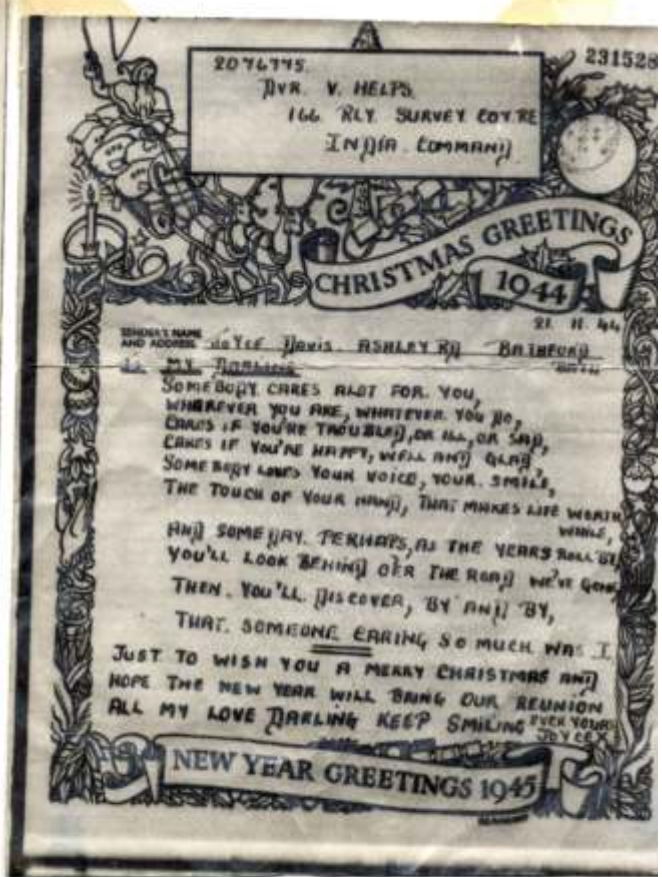 231528
2076775.
DVR. V. HELPS.
166 RLY. SURVEY COY. RE
INDIA. COMMAND
CHRISTMAS GREETINGS
1944
21. 11. 44
SENDER'S NAME
AND ADDRESS JOYCE DAVIS ASHLEY RD BATHFORD
MY DARLING
SOMEBODY CARES ALOT FOR. YOU,
WHEREVER YOU ARE, WHATEVER YOU DO,
CARES IF YOU'RE TROUBLED, OR ILL, OR SAD,
CARES IF YOU'RE HAPPY, WELL AND GLAD,
SOMEBODY LOVES YOUR VOICE, YOUR. SMILE,
THE TOUCH OF YOUR HAND, THAT MAKES LIFE WORTH
WHILE,
AND SOMEDAY. PERHAPS, AS THE YEARS ROLL BY,
YOU'LL LOOK BEHIND O'ER THE ROAD WE'VE GONE
THEN. YOU'LL. DISCOVER, BY AND BY,
THAT. SOMEONE CARING SO MUCH WAS I.
JUST TO WISH YOU A MERRY CHRISTMAS AND
HOPE THE NEW YEAR WILL BRING OUR REUNION
ALL MY LOVE DARLING KEEP SMILING EVER YOURS
JOYCE X
NEW YEAR GREETINGS 1945